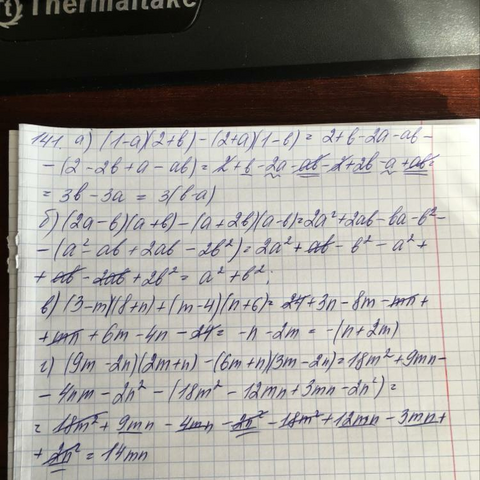 Thermaltake
141. а) (1-a)(2+b) - (2+a)(1-b) = 2+b-2a-ab-
- (2-2b+a-ab) = 2+b-2a-ab-2+2b-a+ab=
= 3b-3a = 3(b-a)
б) (2a-b)(a+b) - (a+2b)(a-b)=2a²+2ab-ba-b²-
- (a²-ab+2ab-2b²)= 2a²+ab-b²-a²+
+ab-2ab+2b² = a²+b²;
в) (3-m)(8+n)+(m-4)(n+6)= 24+3n-8m-mn+
+mn+6m-4n-24= -n-2m = -(n+2m)
г) (9m-2n)(2m+n) - (6m+n)(3m-2n)=18m²+9mn-
-4nm-2n²-(18m²-12mn+3mn-2n²)=
= 18m²+9mn-4mn-2n²-18m²+12mn-3mn+
+2n² = 14mn